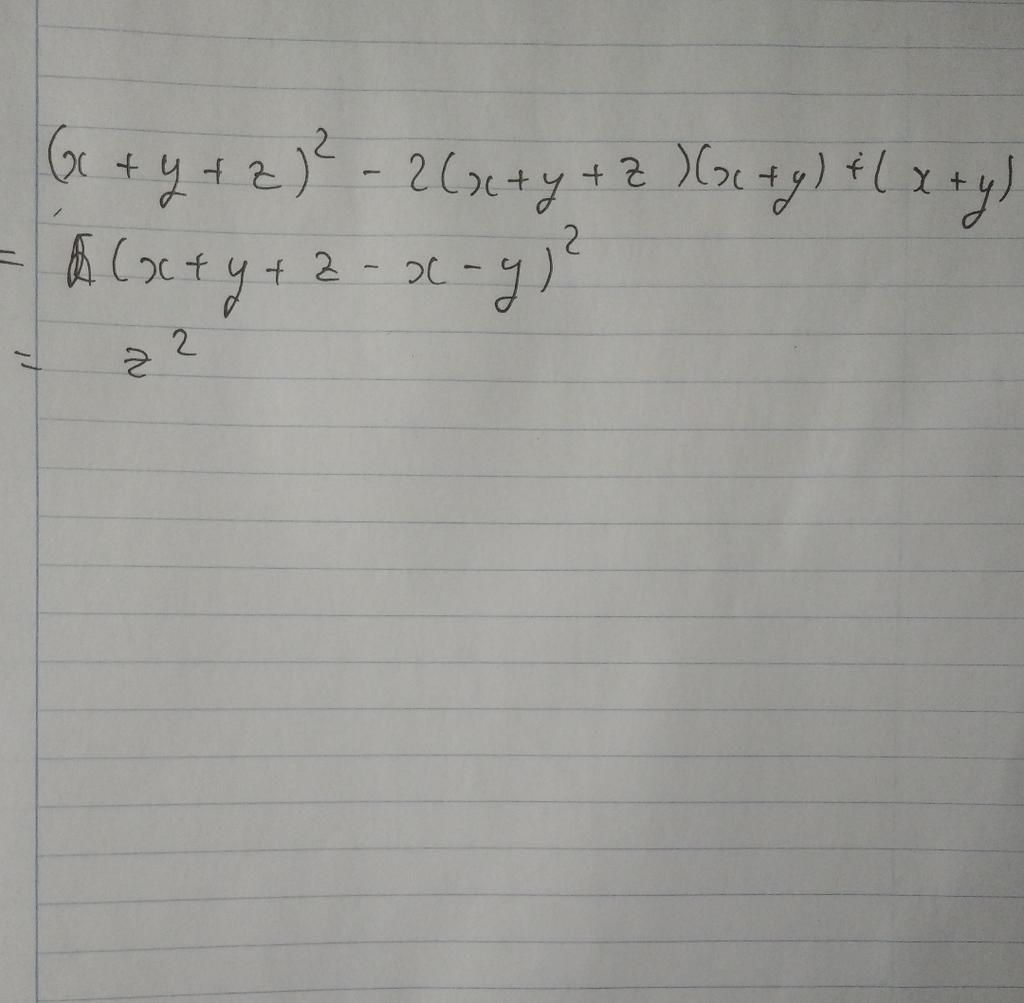 (x + y + z)² - 2(x+y+z)(x+y) + (x+y)
= (x+y+z-x-y)²
= z²